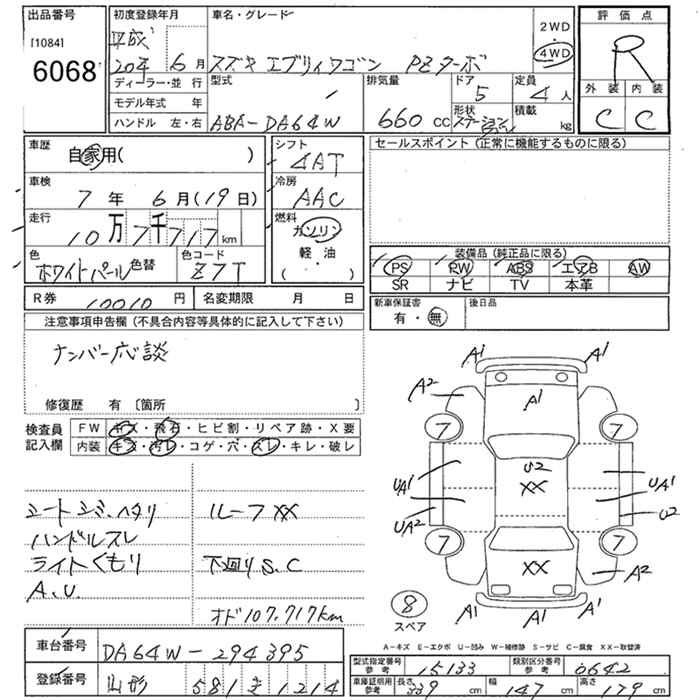 出品番号 初度登録年月 車名・グレード 2WD ・ 4WD 評価点
[1084] 平成 R
6068 20年 6月 スズキ エブリィワゴン PZターボ
ディーラー・並行 型式 排気量 ドア 定員 外装 内装
モデル年式 年 5 4人 C C
ハンドル 左・右 ABA-DA64W 660cc 形状 ステーション 積載 kg
車歴 シフト セールスポイント(正常に機能するものに限る)
自家用( ) 4AT
車検 冷房
7年 6月(19日) AAC
走行 燃料
10万7千717km ガソリン
色 色替 色コード 軽・油 装備品(純正品に限る)
ホワイトパール Z7T ( ・ ) PS PW ABS エアB AW
SR ナビ TV 本革
R券 10010円 名変期限 月 日 新車保証書 後日品
有・無
注意事項申告欄(不具合内容等具体的に記入して下さい)
ナンバー応談
修復歴 有 〔箇所 〕
検査員 FW キズ・飛石・ヒビ割・リペア跡・X要
記入欄 内装 キズ・汚レ・コゲ・穴・スレ・キレ・破レ
A1 A1
A2 A1
7 7
UA1 U2 UA1
XX
UA2 U2
7 7
XX A2
8 A1 A1 A1
スペア
シートシミ、ヘタリ ルーフXX
ハンドルスレ
ライトくもり 下回りS、C
A、U
オド107,717km
A-キズ E-エクボ U-凹み W-補修跡 S-サビ C-腐食 XX-取替済
車台番号 DA64W-294395
登録番号 山形 581 き 1214
型式指定番号 参考 15133 類別区分番号 参考 0642
車庫証明用 参考 長さ 339cm 幅 147cm 高さ 179cm